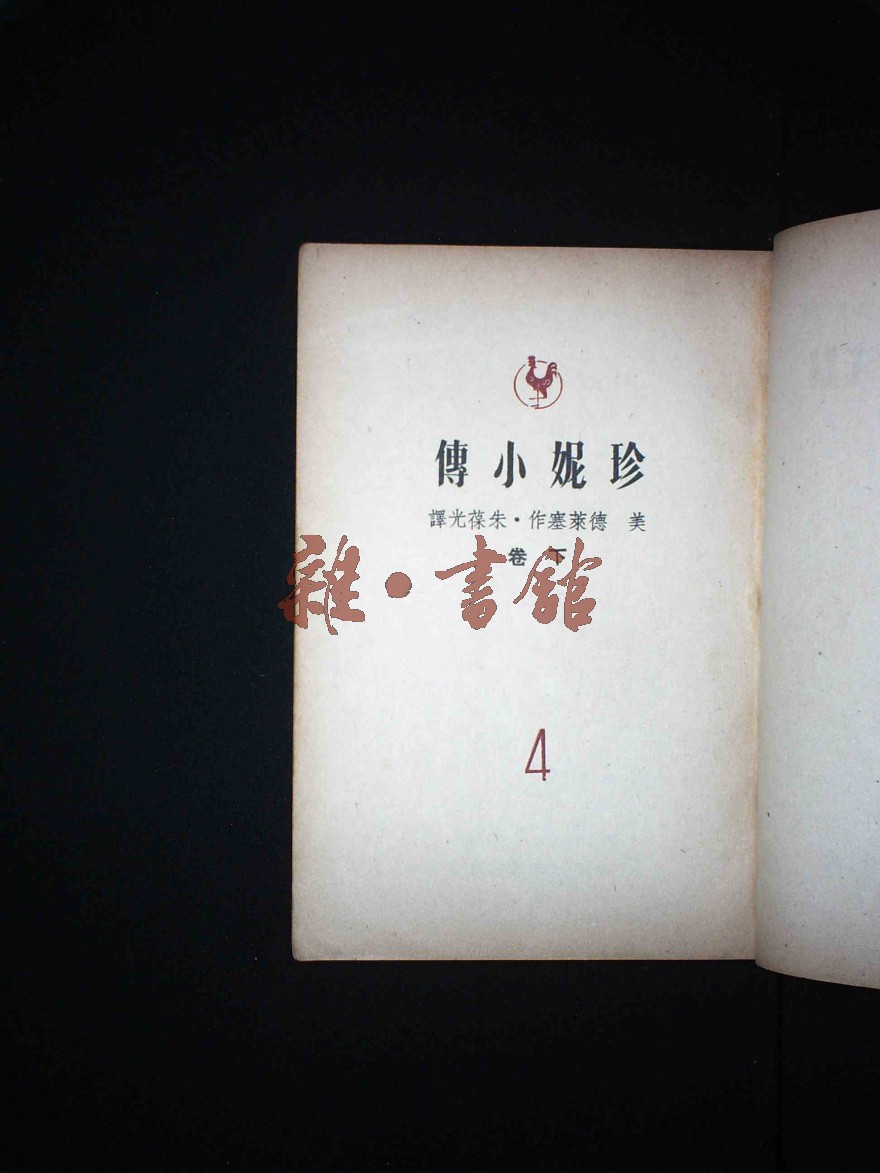 珍妮小傳
美 德萊塞作·朱葆光譯
下卷
雜·書館
4